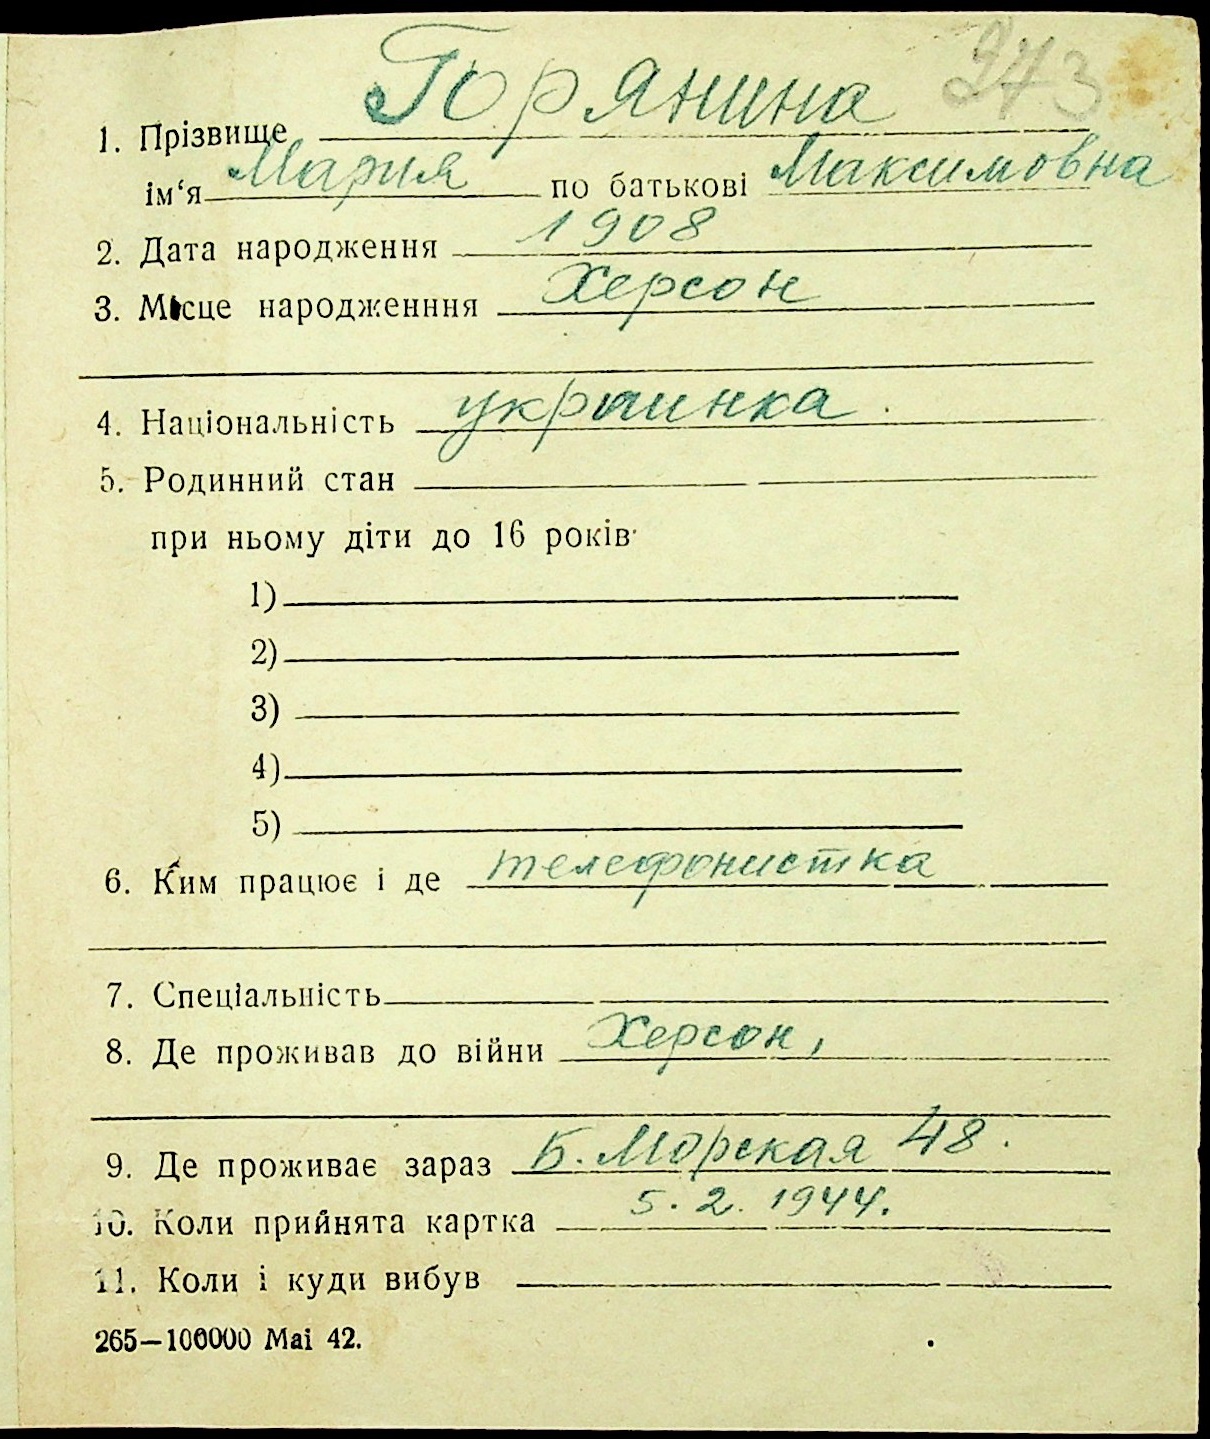 273
1. Прізвище Горянина
ім‘я Мария по батькові Максимовна
2. Дата народження 1908
3. Місце народженння Херсон
4. Національність украинка.
5. Родинний стан
при ньому діти до 16 років
1)
2)
3)
4)
5)
6. Ким працює і де телефонистка
7. Спеціальність
8. Де проживав до війни Херсон,
9. Де проживає зараз Б. Морская 48.
10. Коли прийнята картка 5. 2. 1944.
11. Коли і куди вибув
265—100000 Маі 42.